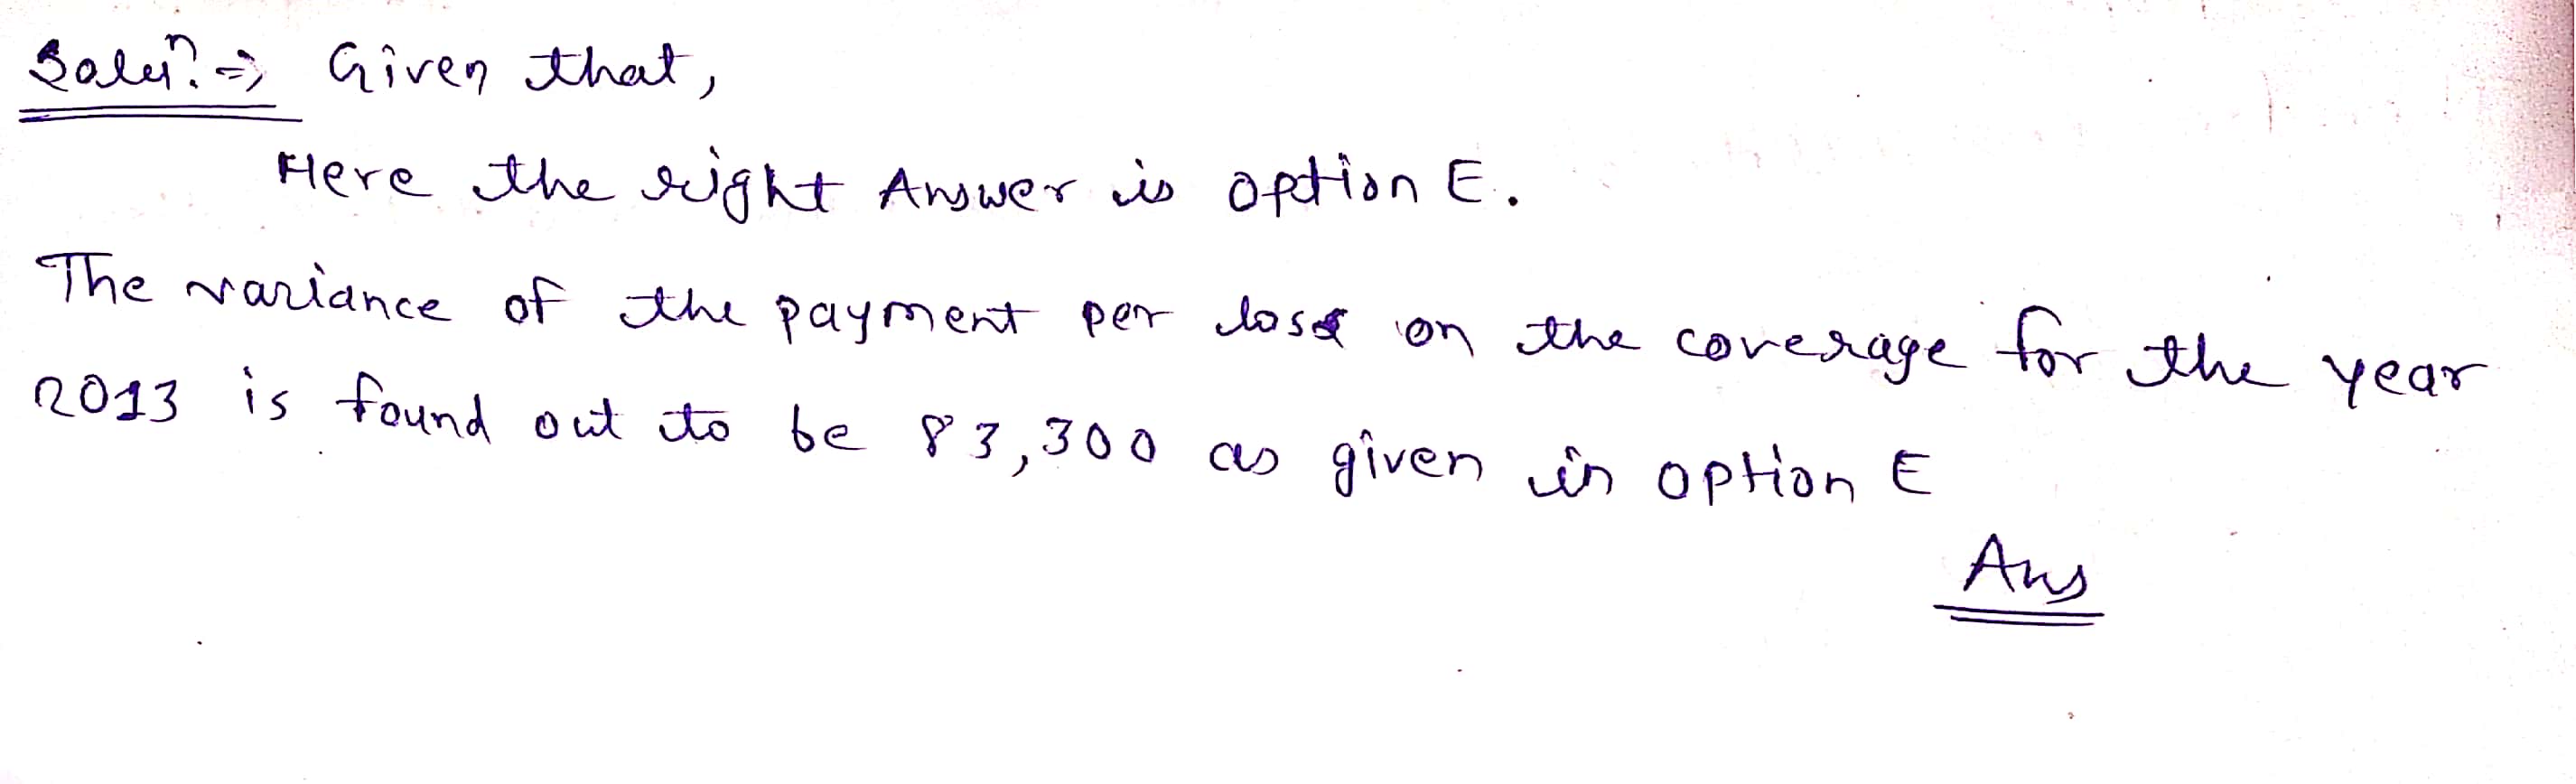 Solun. => Given that,
Here the right Answer is option E.
The variance of the payment per loss on the coverage for the year
2013 is found out to be 83,300 as given in option E
Ans